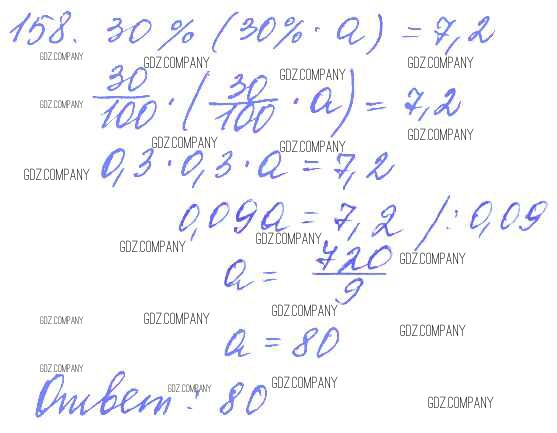 158. 30% (30% · a) = 7,2
GDZ.COMPANY GDZ.COMPANY GDZ.COMPANY
GDZ.COMPANY
30/100 · (30/100 · a) = 7,2
GDZ.COMPANY GDZ.COMPANY
GDZ.COMPANY GDZ.COMPANY
0,3 · 0,3 · a = 7,2
GDZ.COMPANY
0,09a = 7,2 /: 0,09
GDZ.COMPANY GDZ.COMPANY
a = 720/9
GDZ.COMPANY
GDZ.COMPANY GDZ.COMPANY GDZ.COMPANY
a = 80
GDZ.COMPANY
GDZ.COMPANY
Ответ: 80
GDZ.COMPANY GDZ.COMPANY
GDZ.COMPANY